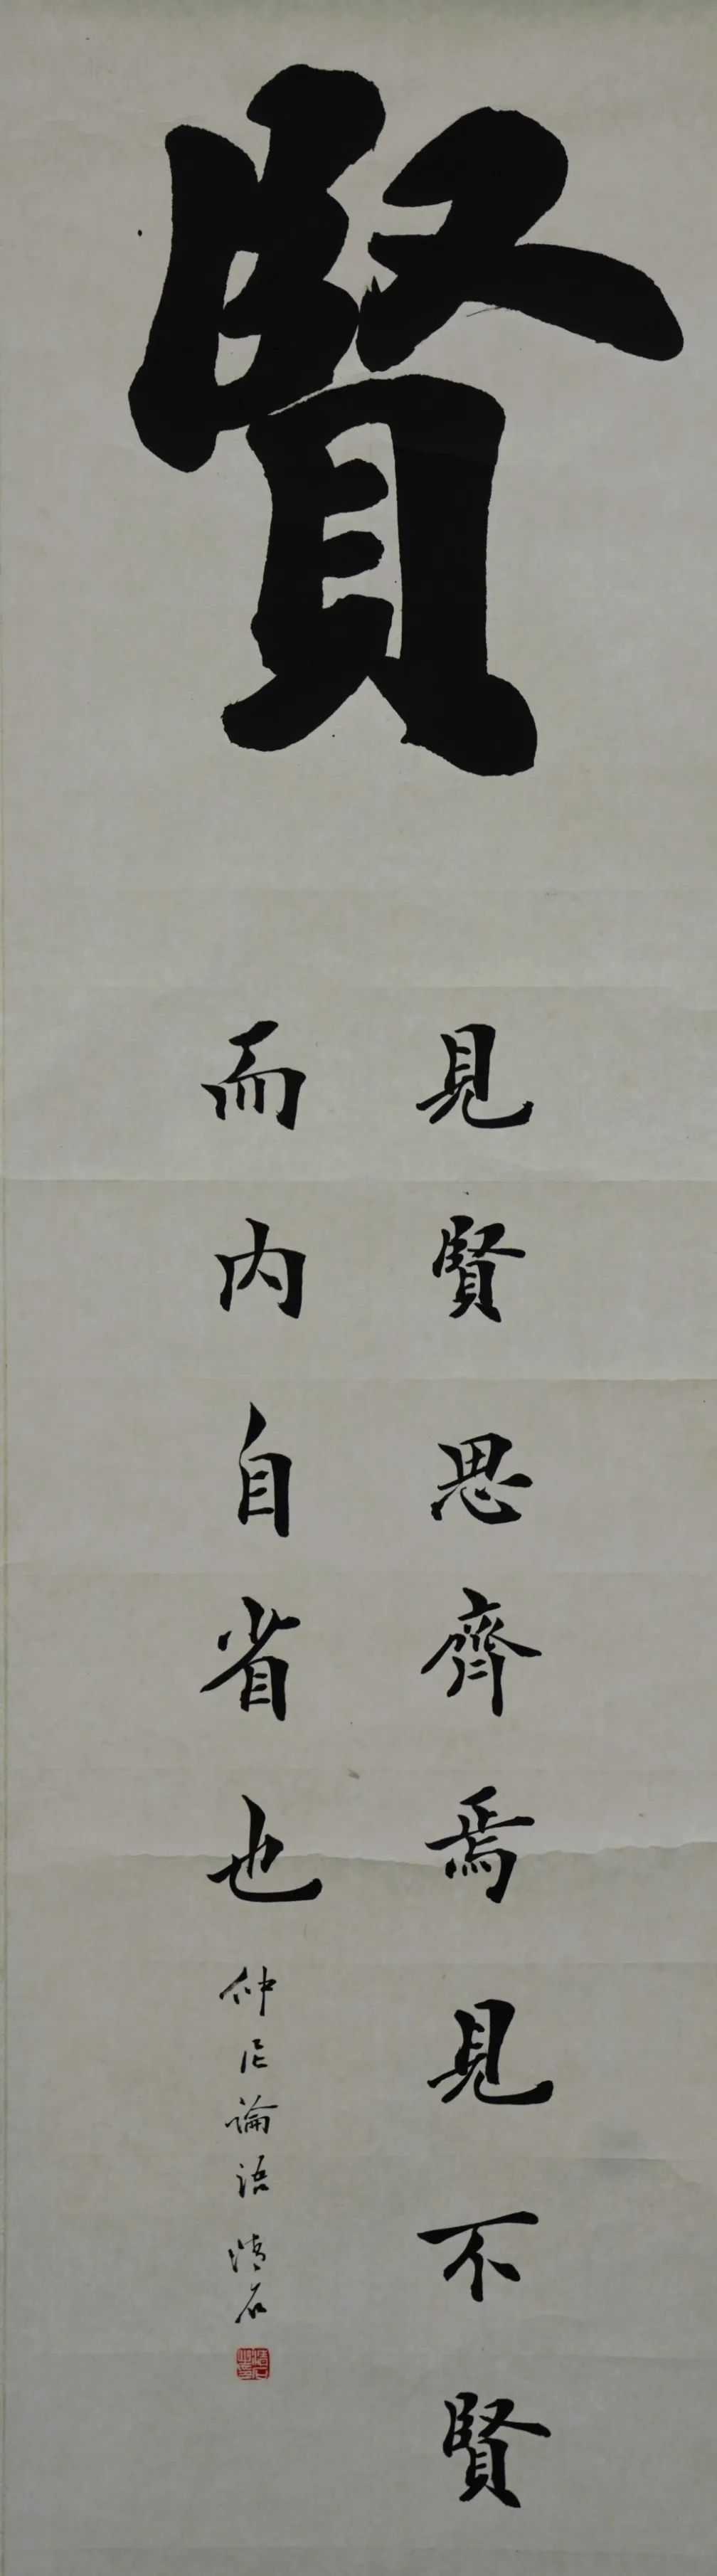 賢
見賢思齊焉見不賢
而内自省也
仲尼論語 清石